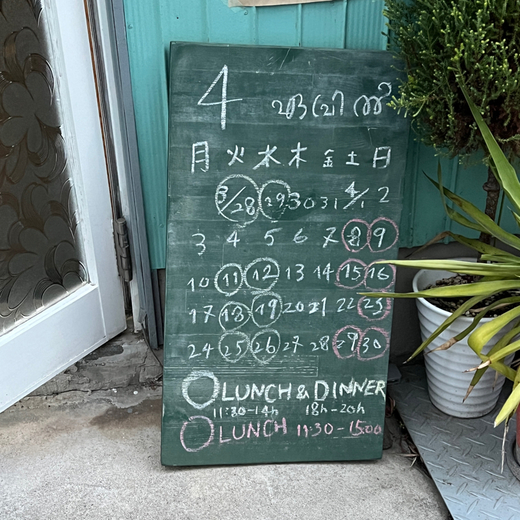 4
月 火 水 木 金 土 日
3/28 29 30 31 4/1 2
3 4 5 6 7 8 9
10 11 12 13 14 15 16
17 18 19 20 21 22 23
24 25 26 27 28 29 30
LUNCH & DINNER
11:30-14h 18h-20h
LUNCH 11:30-15:00